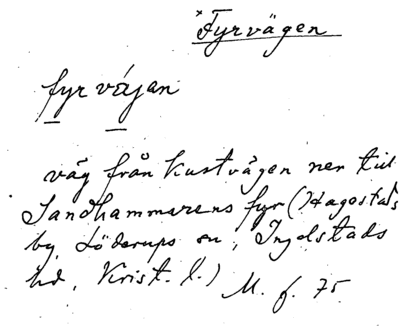 *Fyrvägen
fyrvájan
väg från kustvägen ner till
Sandhammarens fyr (Hagestads
by, Löderups sn, Ingelstads
hd, Krist. l.)
M. f. 75.